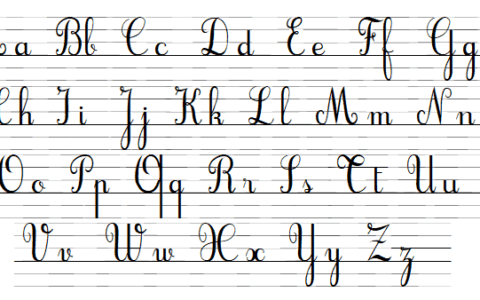 a Bb Cc Dd Ee Ff Gg
h Ii Jj Kk Ll Mm Nn
Oo Pp Qq Rr Ss Tt Uu
Vv Ww Xx Yy Zz